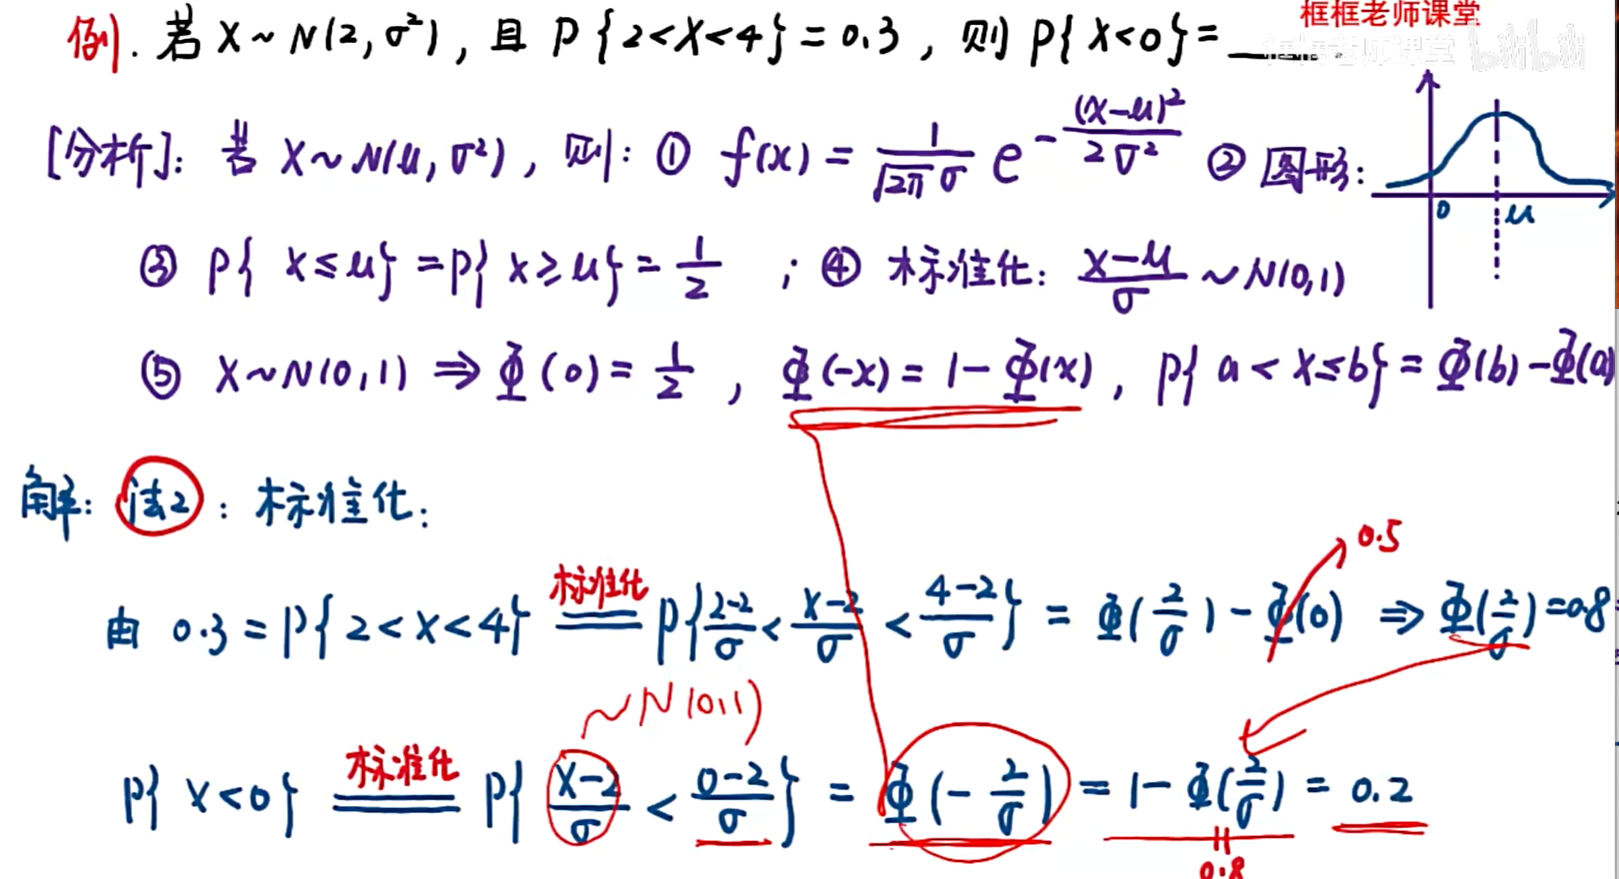 框框老师课堂
例. 若 X~N(2,σ²), 且 P{2<X<4}=0.3, 则 P{X<0}=____.
框框老师课堂 bilibili
[分析]: 若 X~N(μ,σ²), 则: ① f(x) = 1/(√2π σ) e^(-(x-μ)²/(2σ²)) ② 图形:
0 μ
③ P{X≤μ}=P{X≥μ}=1/2 ; ④ 标准化: (X-μ)/σ ~N(0,1)
⑤ X~N(0,1) ⇒ Φ(0)=1/2, Φ(-x)=1-Φ(x), P{a<X≤b}=Φ(b)-Φ(a)
解: 法2: 标准化:
0.5
标准化
由 0.3=P{2<X<4} = P{(2-2)/σ < (X-2)/σ < (4-2)/σ} = Φ(2/σ)-Φ(0) ⇒ Φ(2/σ)=0.8
~N(0,1)
标准化
P{X<0} = P{(X-2)/σ < (0-2)/σ} = Φ(-2/σ) = 1-Φ(2/σ) = 0.2
0.8